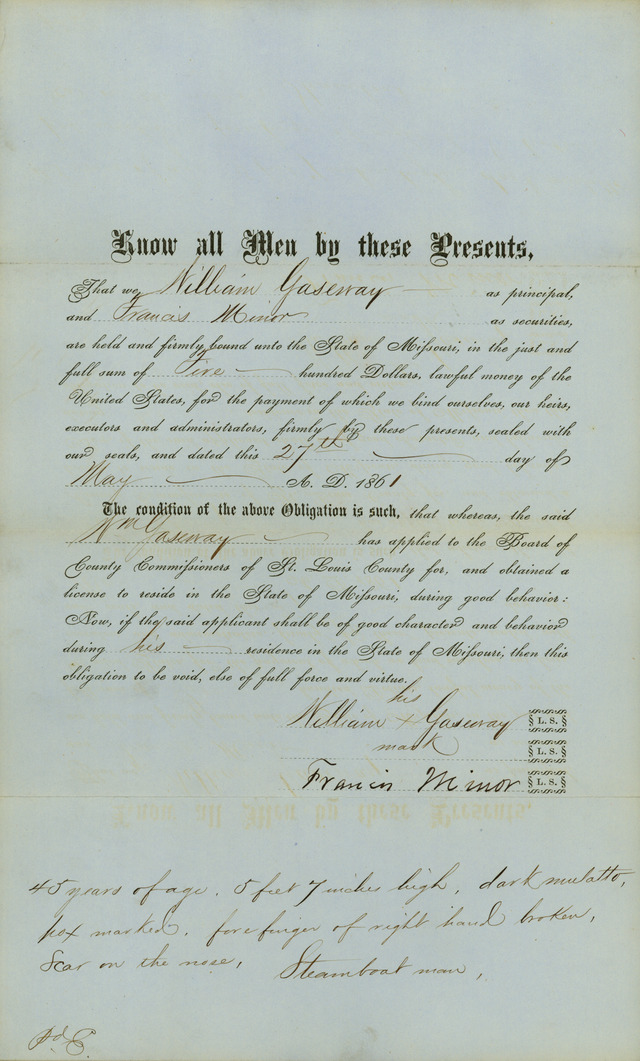 Know all Men by these Presents,
That we William Gaseway as principal,
and Francis Minor as securities,
are held and firmly bound unto the State of Missouri, in the just and
full sum of Five hundred Dollars, lawful money of the
United States, for the payment of which we bind ourselves, our heirs,
executors and administrators, firmly by these presents, sealed with
our seals, and dated this 27th day of
May A. D. 1861
The condition of the above Obligation is such, that whereas, the said
Wm Gaseway has applied to the Board of
County Commissioners of St. Louis County for, and obtained a
license to reside in the State of Missouri, during good behavior:
Now, if the said applicant shall be of good character and behavior
during his residence in the State of Missouri, then this
obligation to be void, else of full force and virtue.
his
William x Gaseway L. S.
mark L. S.
Francis Minor L. S.
45 years of age. 5 feet 7 inches high, dark mulatto,
pox marked, fore finger of right hand broken,
Scar on the nose, Steamboat man,